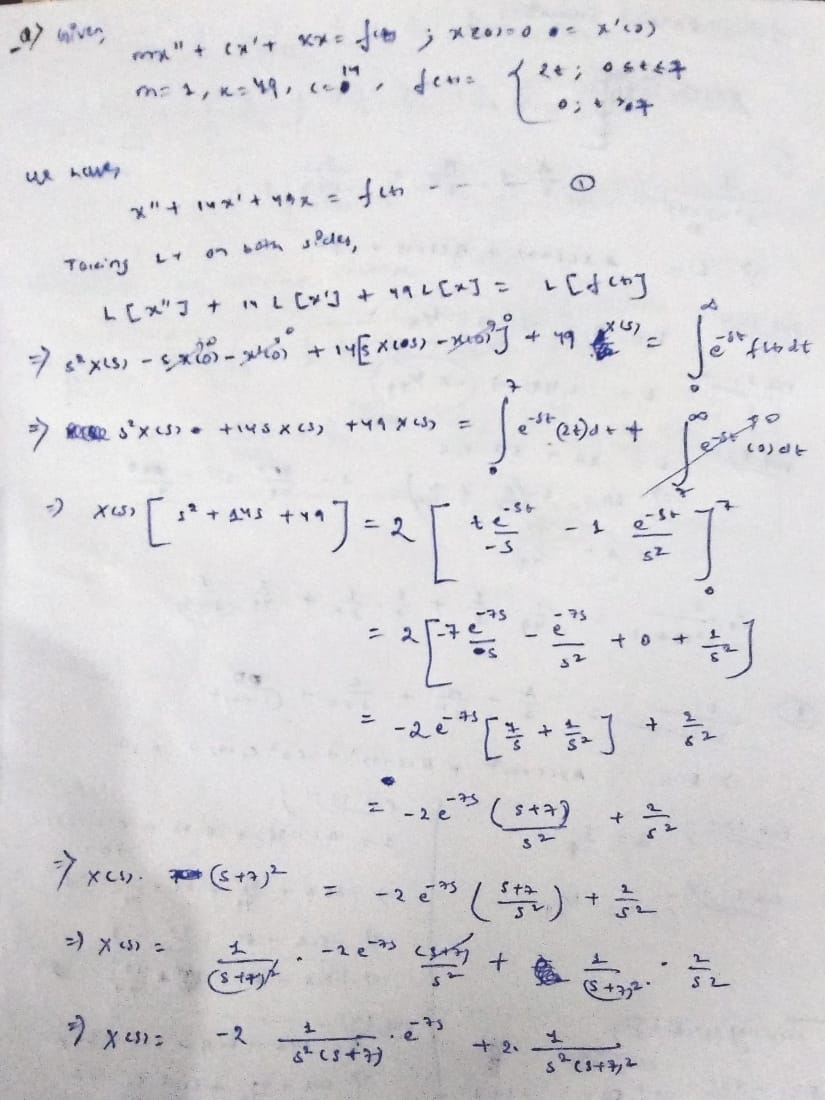 a) Given,
mx" + cx' + kx = f(t) ; x(0) = 0 = x'(0)
m = 1, k = 49, c = 14, f(t) = { 2t ; 0 ≤ t ≤ 7
0 ; t > 7
we have,
x" + 14x' + 49x = f(t) - - - ①
Taking LT on both sides,
L[x"] + 14 L[x'] + 49 L[x] = L[f(t)]
⇒ s²X(s) - sx(0) - x'(0) + 14[s X(s) - x(0)] + 49 X(s) = ∫₀^∞ e^{-st} f(t) dt
⇒ s²X(s) + 14s X(s) + 49 X(s) = ∫₀^7 e^{-st} (2t) dt + ∫₇^∞ e^{-st} (0) dt → 0
⇒ X(s) [s² + 14s + 49] = 2 [t e^{-st}/-s - 1 e^{-st}/s²]₀^7
= 2 [-7 e^{-7s}/s - e^{-7s}/s² + 0 + 1/s²]
= -2e^{-7s} [7/s + 1/s²] + 2/s²
= -2e^{-7s} (s+7)/s² + 2/s²
⇒ X(s). (s+7)² = -2 e^{-7s} (s+7/s²) + 2/s²
⇒ X(s) = 1/(s+7)² . -2e^{-7s} (s+7)/s² + 1/(s+7)² . 2/s²
⇒ X(s) = -2 1/s²(s+7) . e^{-7s} + 2. 1/s²(s+7)²